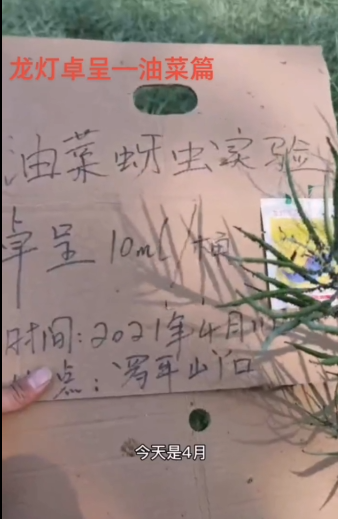 龙灯卓呈—油菜篇
油菜蚜虫实验
卓呈 10ml/桶
时间:2021年4月11
点:
山丫口
今天是4月